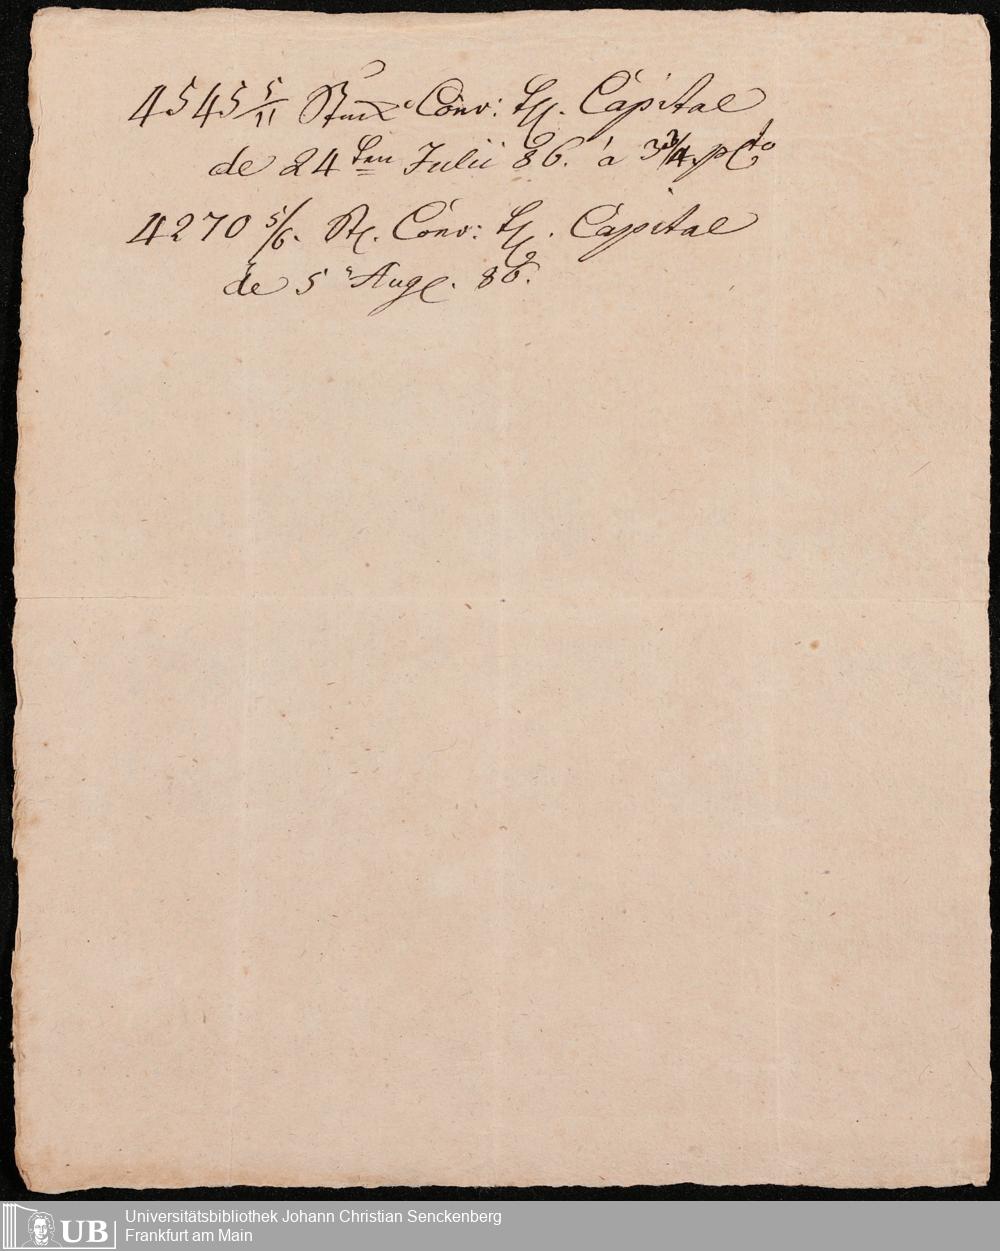 4545 5/11 Stuck Conv: Th. Capital
de 24ten Julii 86. á 3 3/4 pCto
4270 5/6. St. Conv: Th. Capital
de 5 Aug. 86.
UB
Universitätsbibliothek Johann Christian Senckenberg
Frankfurt am Main